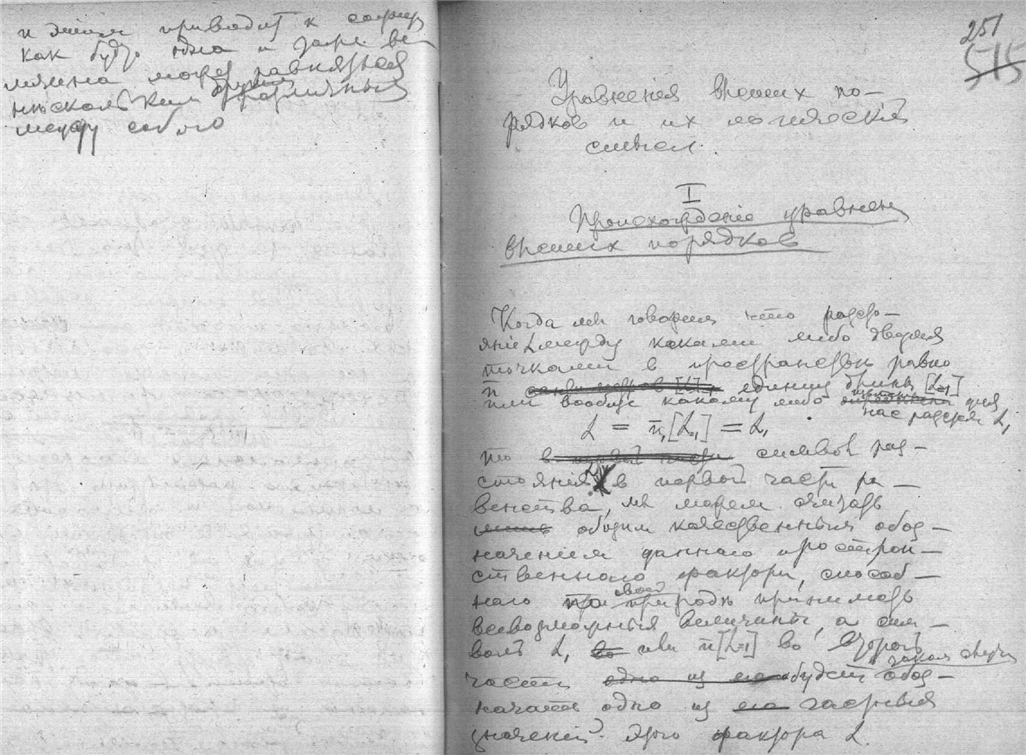 и этим приводит к
как будто одна и та же ве
личина может равняться
нескольким другим различным
между собою
251
515
Уравнения высших по-
рядков и их логический
смысл.
I
Происхождение уравнен
высших порядков
Когда мы говорим что разсто-
яніе L между какими либо двумя
точками в пространстве равно
n единиц длины [L1]
или вообще какому либо для
нас разст L1
L = n1[L1] = L1
то символ раз-
стояния L в первой части ра-
венства, мы можем считать
общим качественным обоз-
начением данного простран-
ственного фактора, способ-
наго по своей природе принимать
всевозможныя величины, а сим-
вол L1 или n[L1] во второй
части будет обоз-
начать одно из частных
значений этого фактора L.